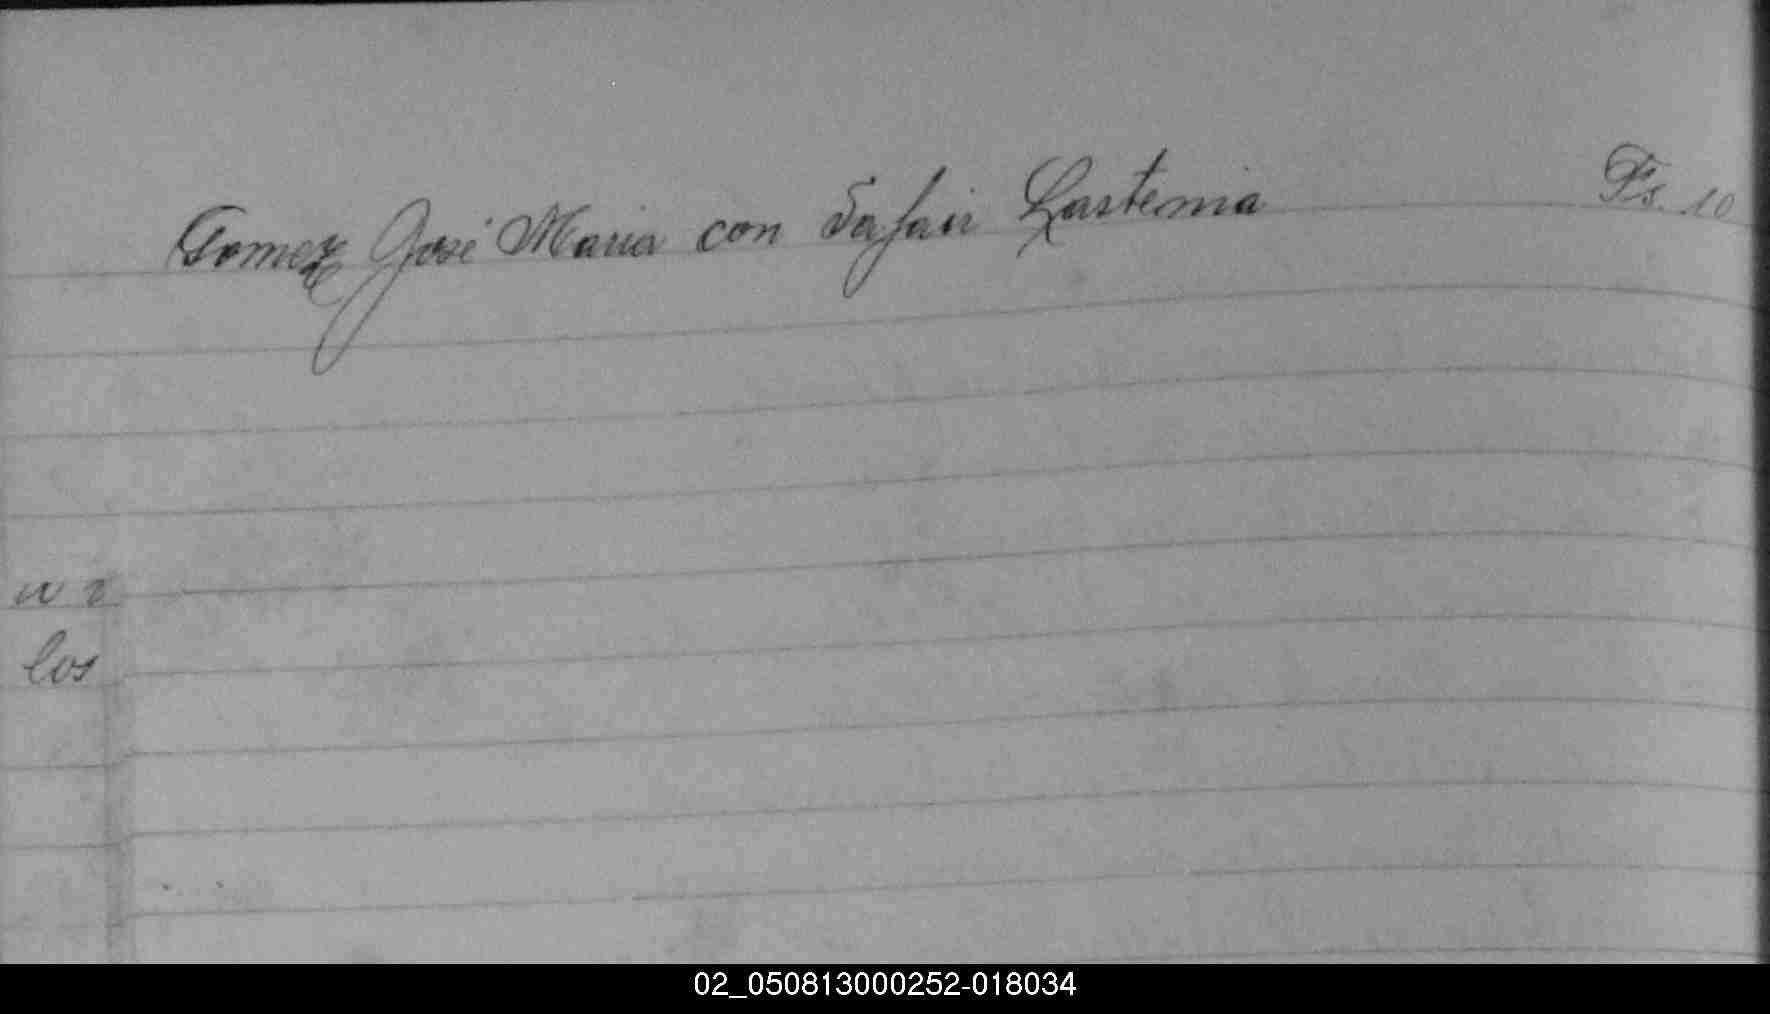 Gomez José Maria con Safair Lastenia Fs. 10
los
02_050813000252-018034